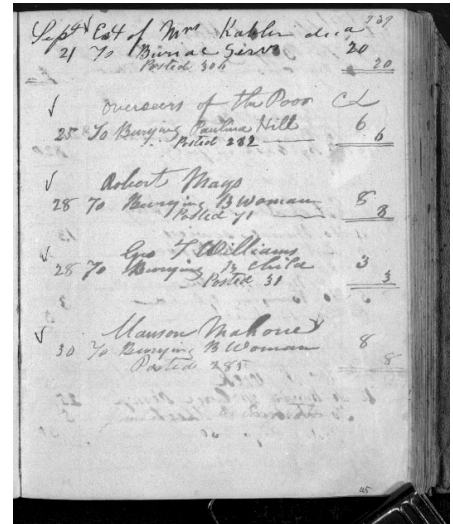 239
Sept Est of Mrs Kabler decd
21 To Burial Serv 20
Posted 306 20
√ Overseers of the Poor CL
25 To Burying Paulina Hill 6
Posted 282 6
√ Robert Mays
28 To Burying B Woman 8
Posted 71 8
√ Geo T Williams
28 To Burying B Child 3
Posted 31 3
√ Manson Mahone
30 To Burying B Woman 8
Posted 285 8
45